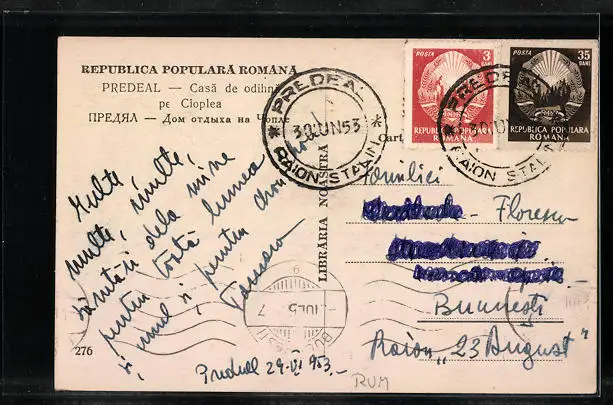 REPUBLICA POPULARĂ ROMÂNĂ
PREDEAL — Casă de odihnă
pe Cioplea
ПРЕДЯЛ — Дом отдыха на Чопле
POSTA
3
BANI
REPUBLICA POPULARA
ROMANA
POSTA
35
BANI
REPUBLICA POPULARA
ROMANA
PREDEAL
30 IUN 53
RAION STALIN
PREDEAL
RAION STALIN
Cart
LIBRĂRIA NOASTRĂ
Multe, multe,
multe,
sărutări dela mine
pentru toată lumea
și unul și pentru
Familiei
Florescu
București
Raion "23 August"
Predeal 29.VI 953.-
276
RUM